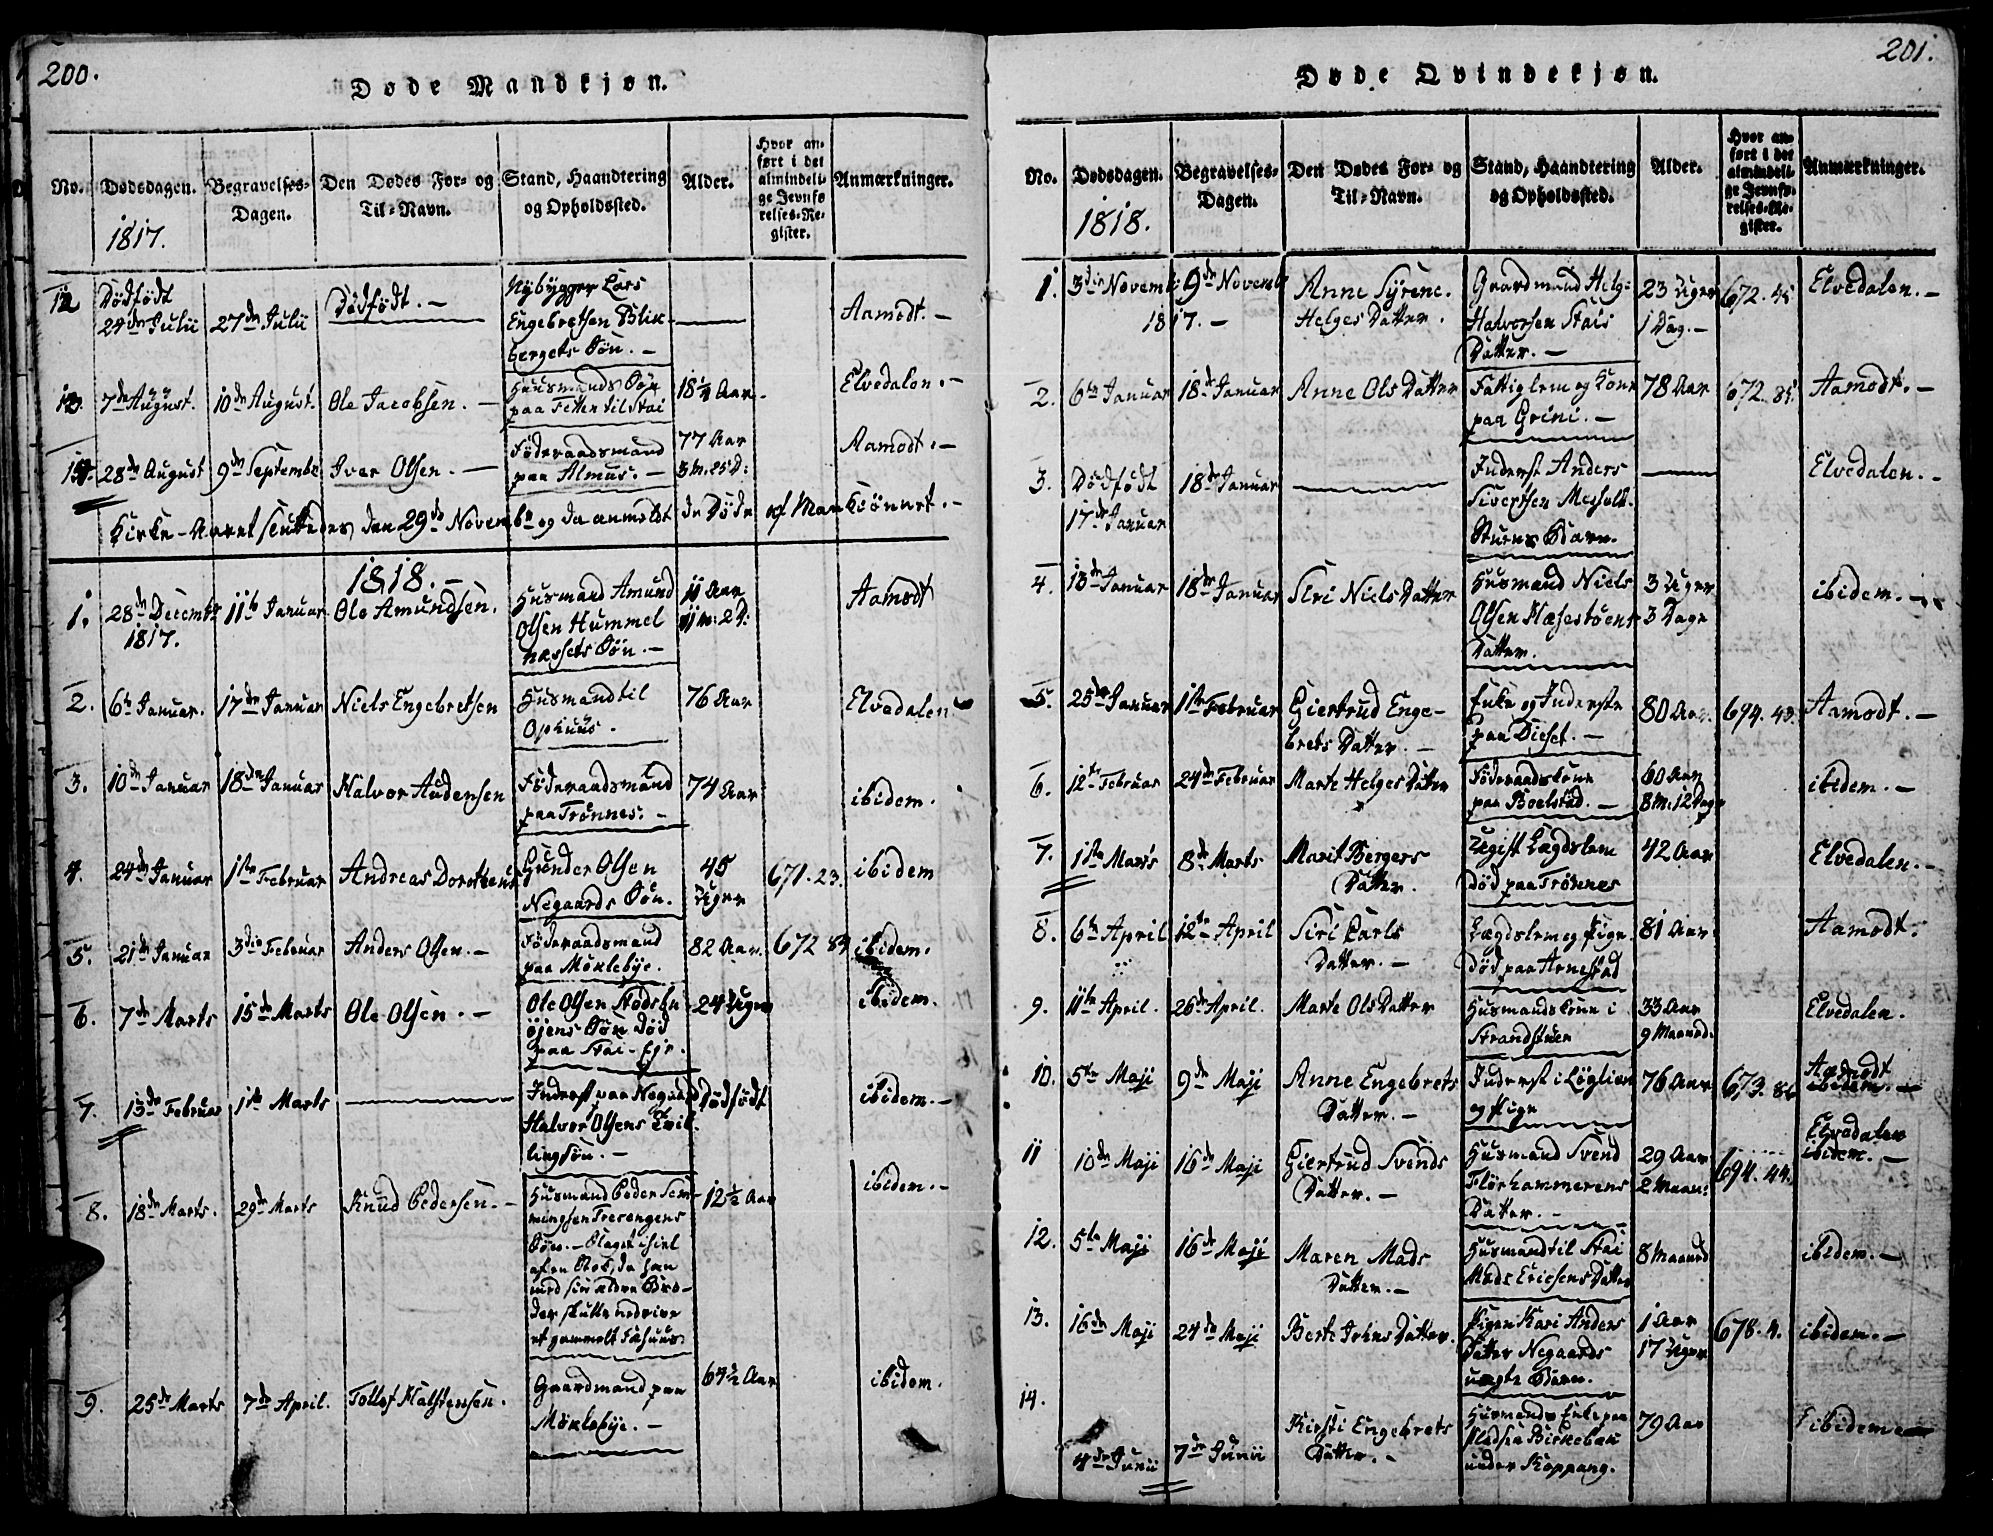 200.
Døde Mandkjøn.
No.
Dødsdagen.
1817.
Begravelses-
Dagen.
Den Dødes For- og
Til-Navn.
Stand, Haandtering
og Opholdssted.
Alder.
Hvor an-
ført i det
almindeli-
ge Jevnfø
relses-Re-
gister.
Anmærkninger.
12
Dödfödt
24de Julii
27de Julii
Dödfödt. —
Nybygger Lars
Engebretsen Blik-
bergets Sön. —
Aamodt. —
13.
7de August.
10de August.
Ole Jacobsen. —
Huusmands Sön
paa Fetten til Stai
18 1/4 Aar
Elvedalen. —
14.
28de August
9de Septembr
Iver Olsen. —
Föderaadsmand
paa Almus. —
77 Aar
3 M. 25 D:
Aamodt. —
Kirke-Aaret sluttedes den 29de Novembr og da anmeldt de Döde af Mankiönnet. —
1818. —
1.
28de Decembr
1817.
11te Januar
Ole Amundsen.
Husmand Amund
Olsen Hummel
næssets Sön. —
11 Aar
11 M: 2 D:
Aamodt
2.
6te Januar.
17de Januar
Niels Engebretsen
Husmand til
Ophuus.
76 Aar
Elvedalen
3.
10de Januar
18de Januar
Halvor Audensen
Föderaadsmand
paa Trönnes. —
74 Aar
ibidem.
4.
24de Januar
1ste Februar
Andreas Dorotheus
Gunder Olsen
Negaards Sön.
45
Uger
671. 23.
ibidem
5.
21de Januar
3die Februar
Anders Olsen. —
Föderaadsmand
paa Möklebye.
82 Aar.
672 84
ibidem.
6.
7de Marts
15de Marts
Ole Olsen. —
Ole Olsen Stodsbu
öjens Sön död
paa Stai-Eje.
24 Uger
ibidem.
7.
13de Februar
1ste Marts
Inderst paa Negaard
Halvor Olsens Tvil
lingsön. —
Dödfödt
ibidem. —
8.
18de Marts.
29de Marts
Knud Pedersen. —
Husmand Peder Sem-
mingsen Trevangens
Sön. — Slaget ihiel
af en Stok, da han
med sin ældre Bro-
der skulle nedrive
et gammelt Fæhuus.
12 1/2 Aar
ibidem. —
9.
25de Marts
7de April.
Tollef Halstensen.
Gaardmand paa
Möklebye. —
64 1/2 Aar
ibidem.
201.
Døde Qvindekjøn.
No.
Dødsdagen.
1818.
Begravelses-
Dagen.
Den Dødes For- og
Til-Navn.
Stand, Haandtering
og Opholdssted.
Alder.
Hvor an-
ført i det
almindeli-
ge Jevnfø-
relses-Re-
gister.
Anmærkninger.
1.
3die Novembr
1817. —
9de Novembr
Anne Syrene.
Helges Datter.
Gaardmand Helge
Halvorsen Stais
Datter. —
23 Uger
1 Dag. —
672. 45
Elvedalen. —
2.
6te Januar
18de Januar
Anne Ols Datter
Fattiglem og Kone
paa Grini. —
78 Aar
672. 85.
Aamodt. —
3.
Dödfödt
17de Januar
18de Januar
Inderst Anders
Sivertsen Messelt-
Stuens Barn.
Elvedalen. —
4.
13de Januar
18de Januar
Siri Niels Datter
Husmand Niels
Olsen Næsestöens
Datter.
3 Uger
3 Dage
ibidem. —
5.
25de Januar
1ste Februar
Giertrud Enge-
brets Datter. —
Enke og Inderste
paa Dieset. —
80 Aar.
694. 43.
Aamodt. —
6.
12te Februar
24de Februar
Marte Helges Datter
Föderaadskone
paa Boelstad. —
60 Aar
8 M: 12 Dage
ibidem. —
7.
1ste Marts
8de Marts
Marit Bergers
Datter.
Ugift Lægdslem
död paa Trönnes
42 Aar
Elvedalen. —
8.
6te April
12te April
Siri Carls
Datter. —
Lægdslem og Pige
död paa Arnestad
81 Aar
Aamodt.
9.
11te April.
26de April.
Marte Ols Datter
Husmandskone i
Strandstuen
33 Aar
9 Maaned.
Elvedalen.
10.
5te Maji
9de Maji
Anne Engebrets
Datter. —
Inderst i Löglien
og Pige
76 Aar
673. 86
Aamodt
ibidem. —
11
10de Maji
16de Maji
Giertrud Svends
Datter. —
Husmand Svend
Flörhammerens
Datter. —
29 Aar
2 Maan:
694. 44.
Elvedalen
ibidem. —
12.
5te Maji
16de Maji
Maren Mads
Datter. —
Husmand til Stai
Mads Ericsens Datter
8 Maaned
ibidem. —
13.
16de Maji
24de Maji
Berte Johns Datter.
Pigen Kari Anders
Datter Negaards
uægte Barn.
1 Aar
17 Uger
678. 4.
ibidem. —
14.
4de Junii
7de Junii
Kirsti Engebrets
Datter. —
Husmands Enke paa
Pladsen Birkebak
under Koppang.
79 Aar
ibidem